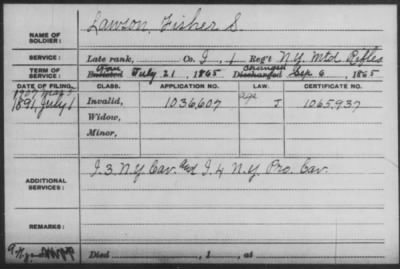 Lawson, Fisher S.
NAME OF SOLDIER:
SERVICE: Late rank, Co. I, 1 Reg't N.Y. Mtd Rifles
TERM OF SERVICE: Enlisted July 21, 1865 Discharged Sep. 6, 1865
DATE OF FILING. CLASS. APPLICATION NO. LAW. CERTIFICATE NO.
1891, July 1 Invalid, 1036,607 J 1065,937
Widow,
Minor,
ADDITIONAL SERVICES: I. 3 N.Y. Cav. and I. 4 N.Y. Pro. Cav.
REMARKS:
Died , 1 , at